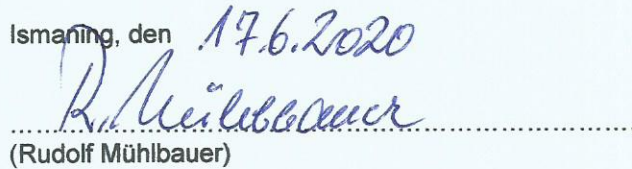 Ismaning, den 17.6.2020
R. Mühlbauer
(Rudolf Mühlbauer)